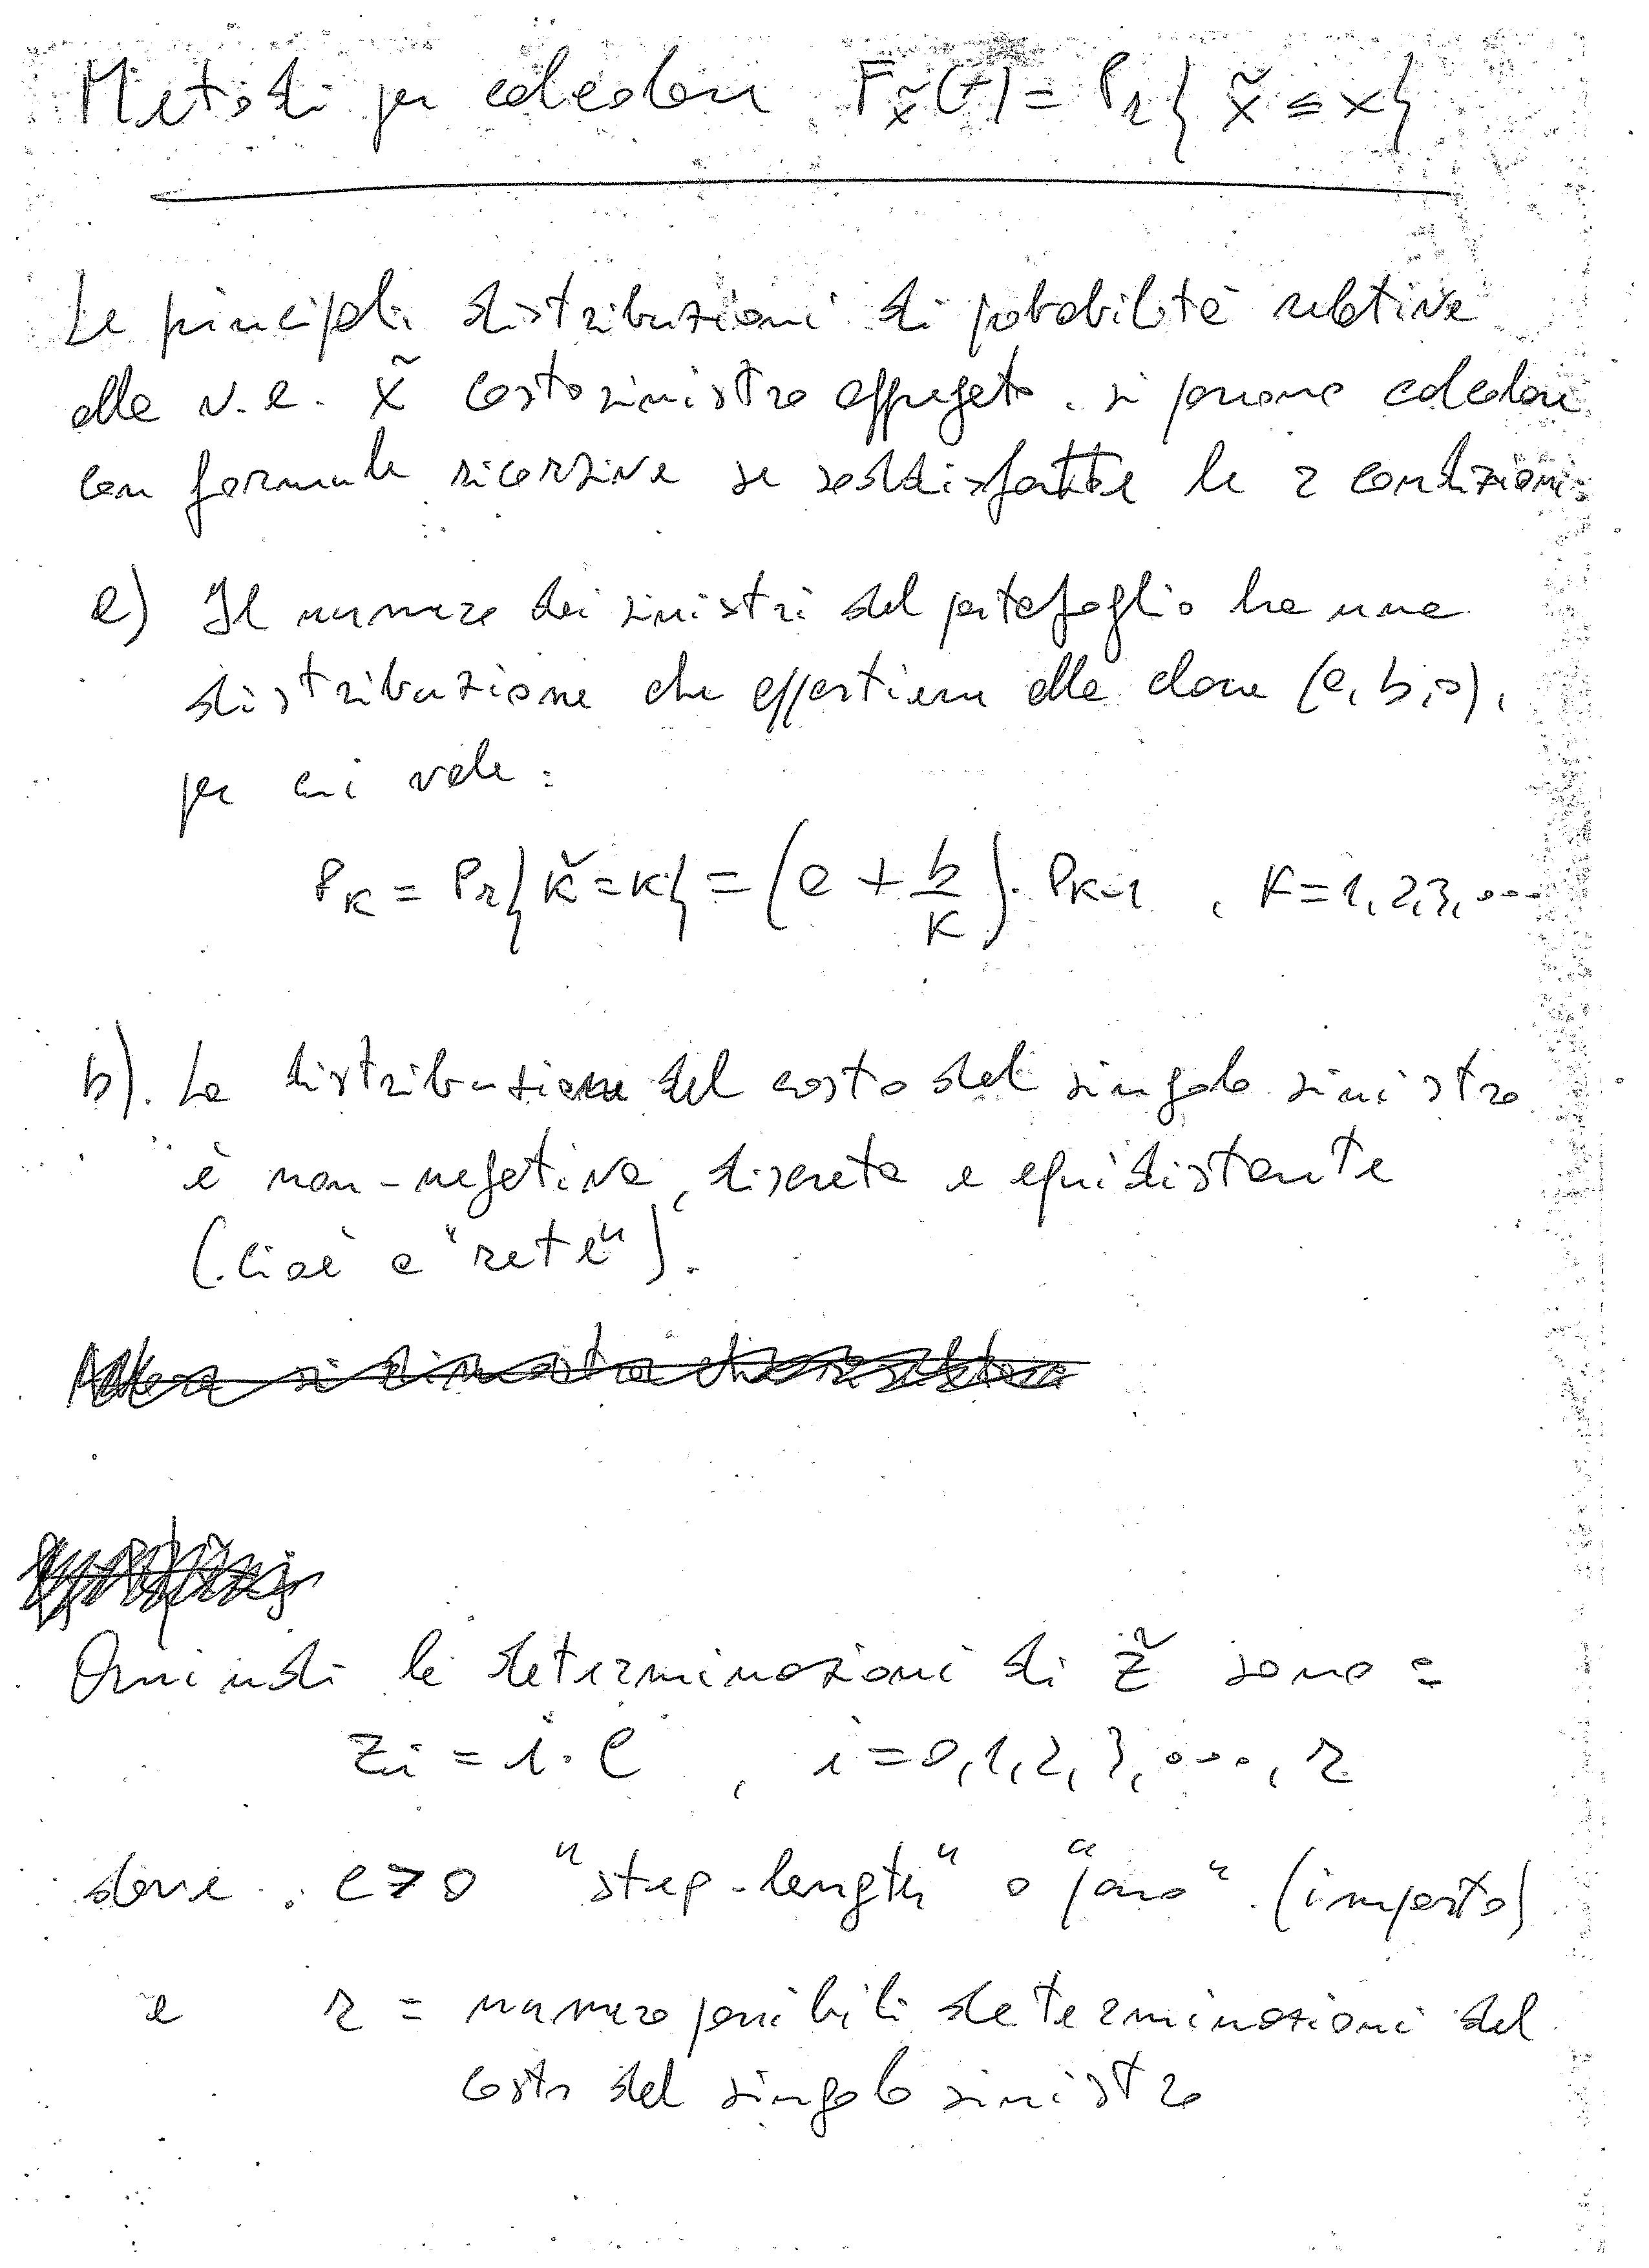 Metodi per calcolare F_x̃(x) = Pr{ x̃ ≤ x }
Le principali distribuzioni di probabilità relative
alla v.a. x̃ costo sinistro aggregato, si possono calcolare
con formule ricorsive se soddisfatte le 2 condizioni:
a) Il numero dei sinistri del portafoglio ha una
distribuzione che appartiene alla classe (a, b, 0),
per cui vale:
P_K = Pr{ K̃ = K } = (a + b/K) · P_K-1 , K = 1, 2, 3, ...
b). La distribuzione del costo del singolo sinistro
è non-negativa, discreta e equidistante
(cioè a "rete").
Quindi le determinazioni di Z̃ sono:
z_i = i · C , i = 0, 1, 2, 3, ..., r
dove C > 0 "step-length" o "passo" (importo)
e r = numero possibili determinazioni del
costo del singolo sinistro